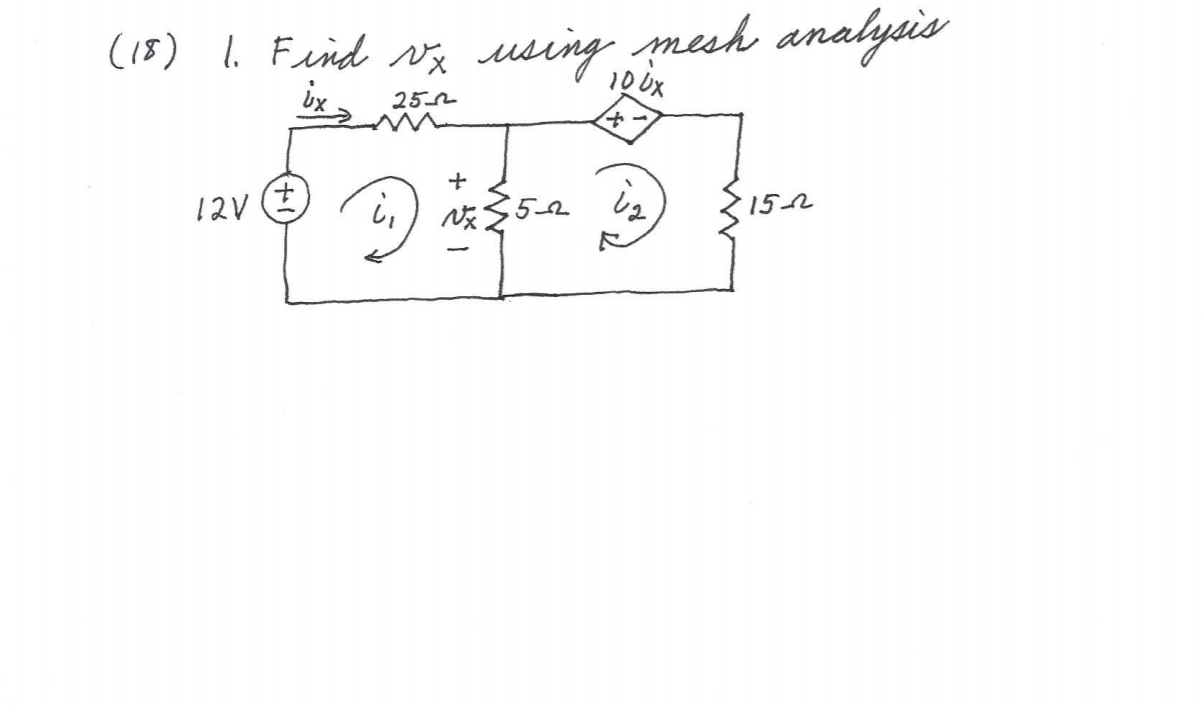 (18) 1. Find vx using mesh analysis
10ix
ix 25Ω
+ -
12V + - i1 + vx - 5Ω i2 15Ω